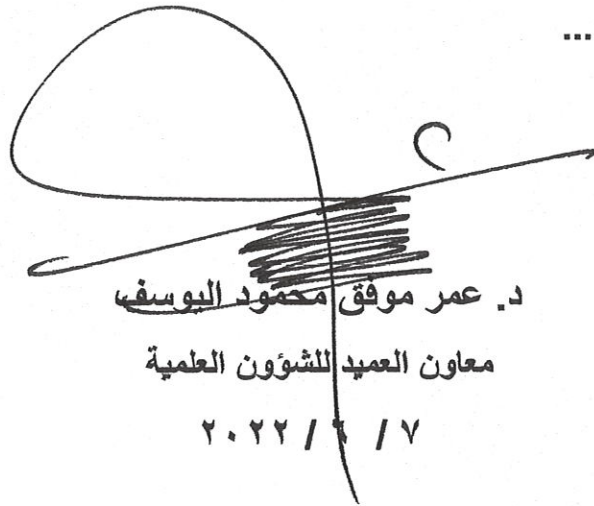 ...
د. عمر موفق محمود اليوسف
معاون العميد للشؤون العلمية
٧ / / ٢٠٢٢